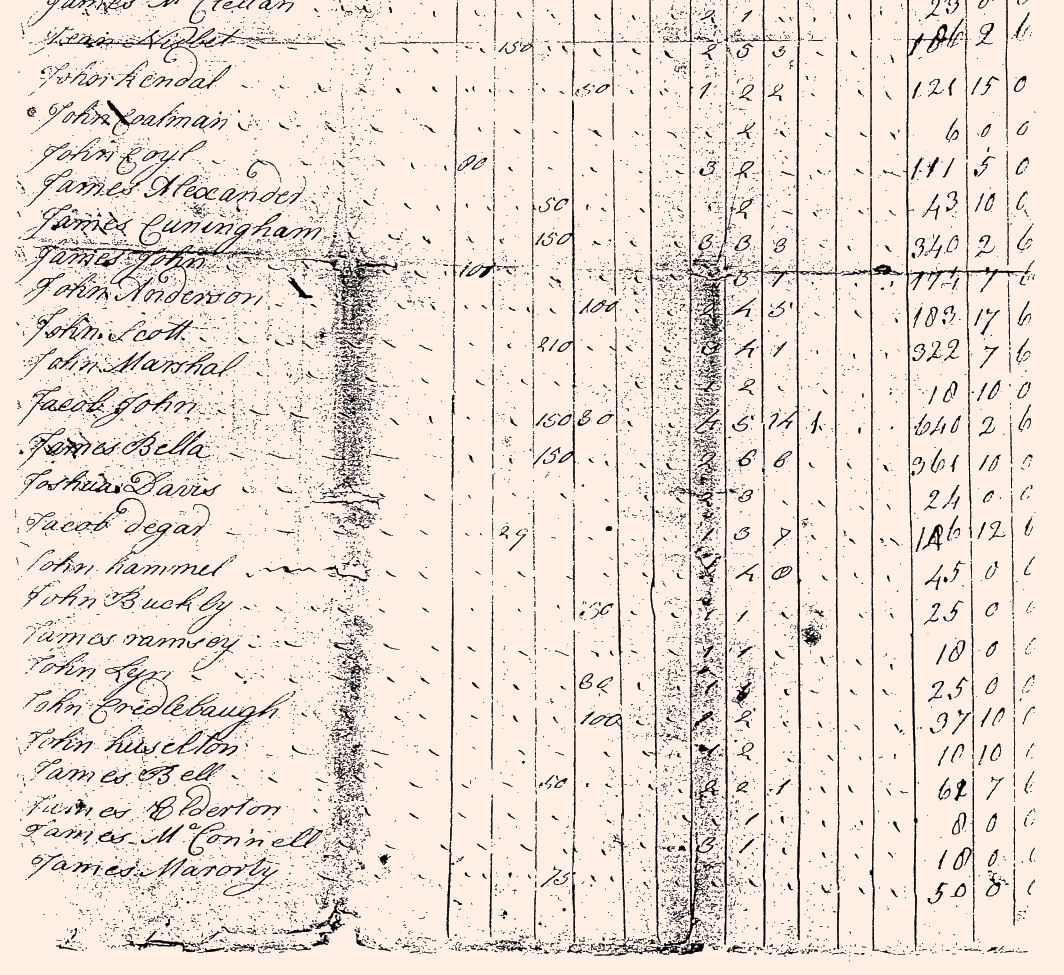 James McClellan 2 1 23 0
Nisbet 150 2 5 3 186 2 6
John Kendal 50 1 2 2 121 15 0
John Coalman 2 6 0 0
John Coyl 80 3 2 111 5 0
James Alexander 50 2 43 10 0
James Cuningham 150 3 3 3 340 2 6
James John 3 1 174 7 6
John Anderson 100 4 5 183 17 6
John Scott 210 3 4 1 322 7 6
John Marshal 2 18 10 0
Jacob John 150 30 4 5 14 1 640 2 6
James Bella 150 2 6 6 361 10 0
Joshua Davis 3 24 0 0
Jacob degar 29 1 3 7 12 6
John hammel 4 45 0 0
John Buckly 50 1 1 25 0 0
James ramsey 1 1 18 0 0
John Lyn 1 25 0 0
John Credlebaugh 100 1 2 37 10
John huselton 1 2 10 10 0
James Bell 50 2 2 1 62 7 6
James Elderton 1 8 0 0
James McConnell 3 1 18 0
James Marorty 75 50 0